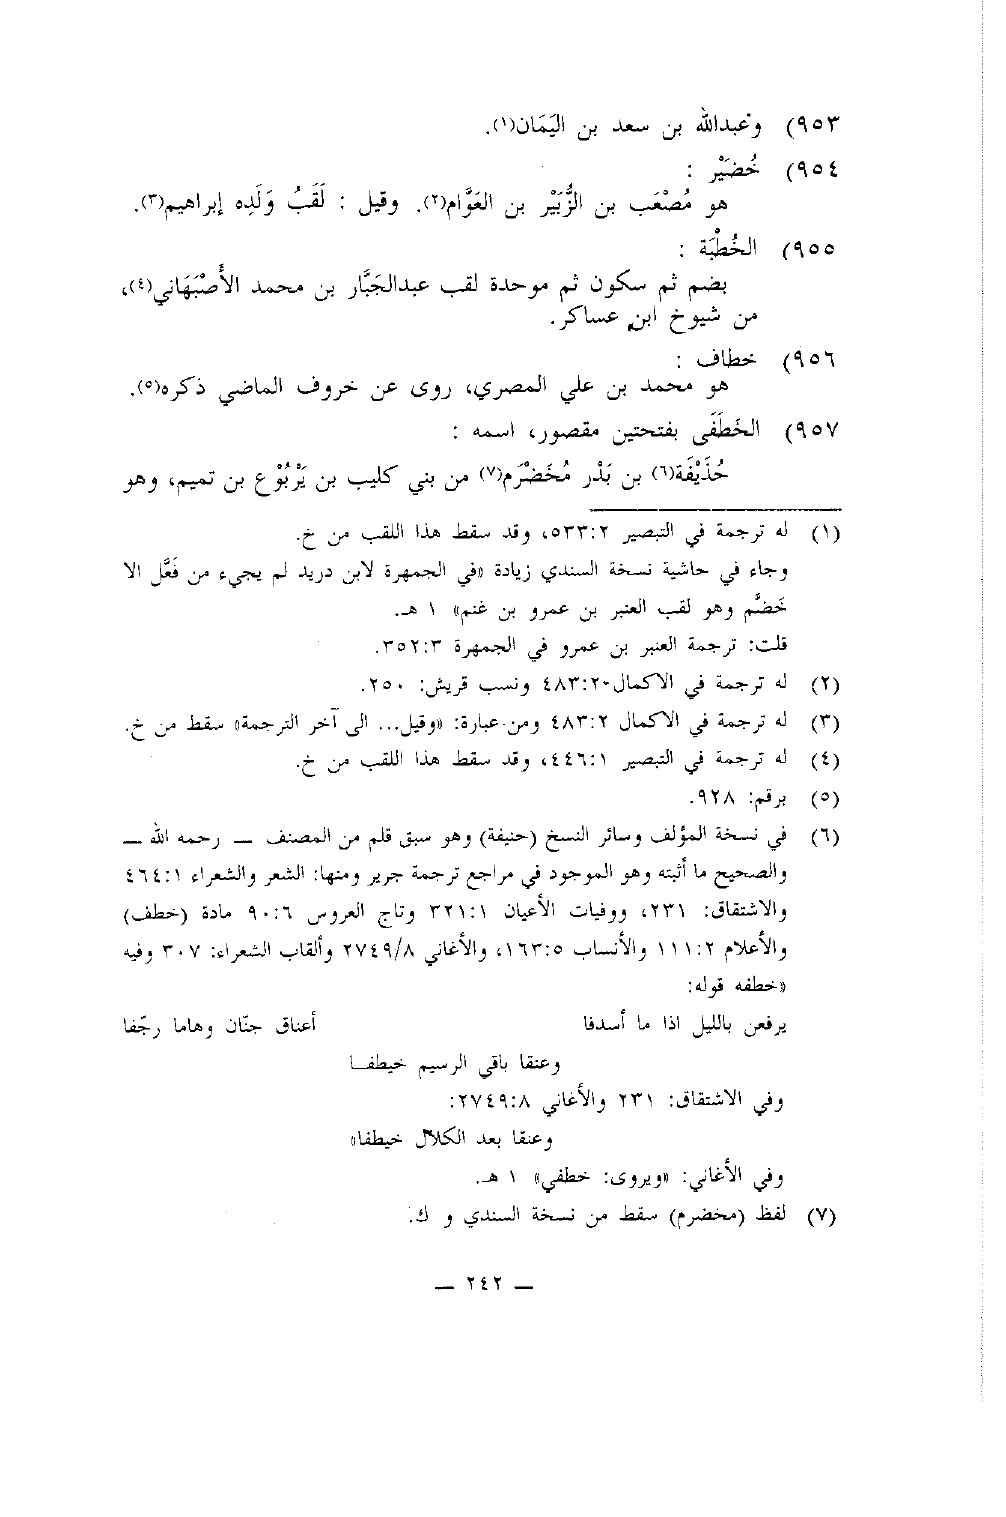 ٩٥٣) وعبدالله بن سعد بن اليَمَان(١).
٩٥٤) خُضَيْر :
هو مُصْعَب بن الزُّبَيْر بن العَوَّام(٢). وقيل : لَقَبُ وَلَدِه إبراهيم(٣).
٩٥٥) الخُطْبَة :
بضم ثم سكون ثم موحدة لقب عبدالجَبَّار بن محمد الأَصْبَهَاني(٤)،
من شيوخ ابن عساكر.
٩٥٦) خطاف :
هو محمد بن علي المصري، روى عن خروف الماضي ذكره(٥).
٩٥٧) الخَطَفَى بفتحتين مقصور، اسمه :
حُذَيْفَة(٦) بن بَدْر مُخَضْرَم(٧) من بني كليب بن يَرْبُوْع بن تميم، وهو
(١) له ترجمة في التبصير ٥٣٣:٢، وقد سقط هذا اللقب من خ.
وجاء في حاشية نسخة السندي زيادة «في الجمهرة لابن دريد لم يجيء من فَعَّل الا
خَضَّم وهو لقب العنبر بن عمرو بن غنم» ١ هـ.
قلت: ترجمة العنبر بن عمرو في الجمهرة ٣٥٢:٣.
(٢) له ترجمة في الاكمال ٤٨٣:٢ ونسب قريش: ٢٥٠.
(٣) له ترجمة في الاكمال ٤٨٣:٢ ومن عبارة: «وقيل... الى آخر الترجمة» سقط من خ.
(٤) له ترجمة في التبصير ٤٤٦:١، وقد سقط هذا اللقب من خ.
(٥) برقم: ٩٢٨.
(٦) في نسخة المؤلف وسائر النسخ (حنيفة) وهو سبق قلم من المصنف – رحمه الله –
والصحيح ما أثبته وهو الموجود في مراجع ترجمة جرير ومنها: الشعر والشعراء ٤٦٤:١
والاشتقاق: ٢٣١، ووفيات الأعيان ٣٢١:١ وتاج العروس ٩٠:٦ مادة (خطف)
والأعلام ١١١:٢ والأنساب ١٦٣:٥، والأغاني ٢٧٤٩/٨ وألقاب الشعراء: ٣٠٧ وفيه
«خطفه قوله:
يرفعن بالليل اذا ما أسدفا أعناق جنّان وهاما رجّفا
وعنقا باقي الرسيم خيطفـا
وفي الاشتقاق: ٢٣١ والأغاني ٢٧٤٩:٨:
وعنقا بعد الكلال خيطفا»
وفي الأغاني: «ويروى: خطفي» ١ هـ.
(٧) لفظ (مخضرم) سقط من نسخة السندي و ك.
– ٢٤٢ –